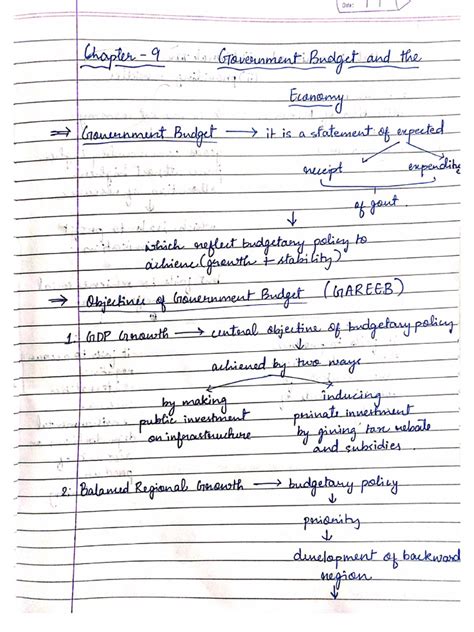 Date:
Chapter - 9 Government Budget and the
Economy
⇒ Government Budget → it is a statement of expected
receipt expenditure
of govt.
↓
which reflect budgetary policy to
achieve (growth + stability)
⇒ Objectives of Government Budget (GAREEB)
1. GDP Growth → central objective of budgetary policy
achieved by two ways
by making inducing
public investment private investment
on infrastructure by giving tax rebate
and subsidies.
2. Balanced Regional Growth → budgetary policy
↓
priority
↓
development of backward
region
↓